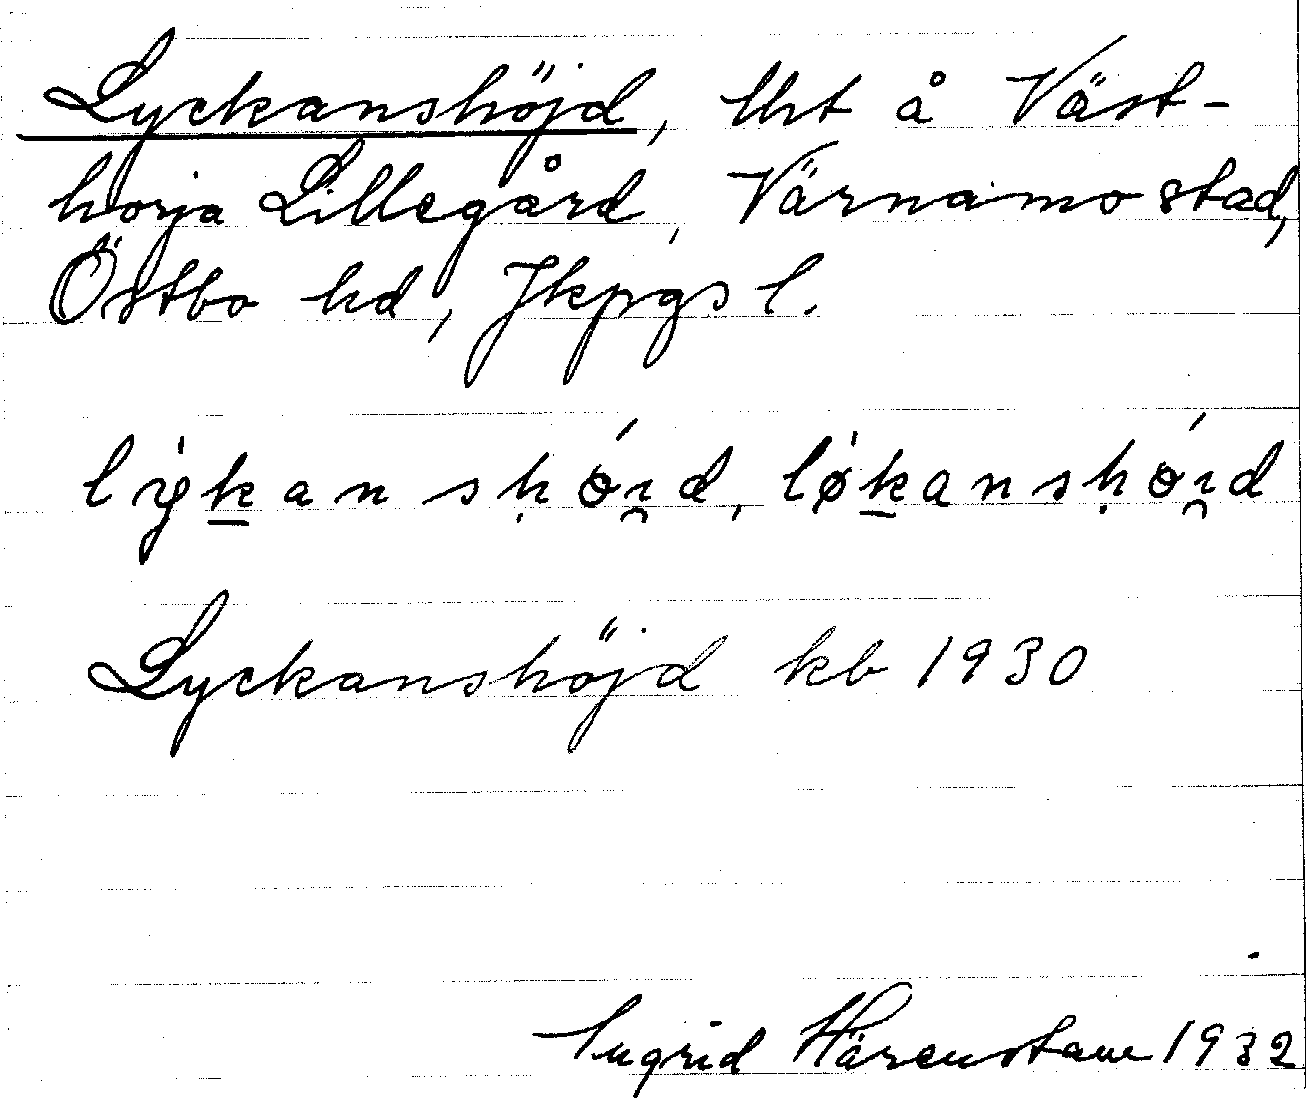 Lyckanshöjd, lht å Väst-
horja Lillegård, Värnamo stad,
Östbo hd, Jkpgs l.
lýk̲ansḥǿi̯d, lø̍k̲ansḥǿi̯d
Lyckanshöjd kb 1930
Ingrid Härenstam 1932